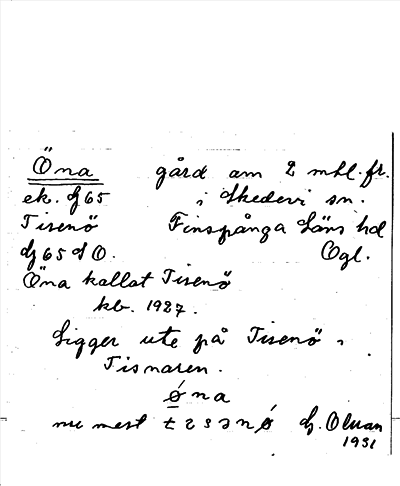 Öna gård om 2 mtl. fr.
ek. Dj 65 i Skedevi sn.
Tisenö Finspånga läns hd
Dj 65 SO. Ögl.
Öna kallat Tisenö
kb. 1927.
Ligger ute på Tisenö i
Tisnaren.
ǿna
nu mest tisənǿ
1931